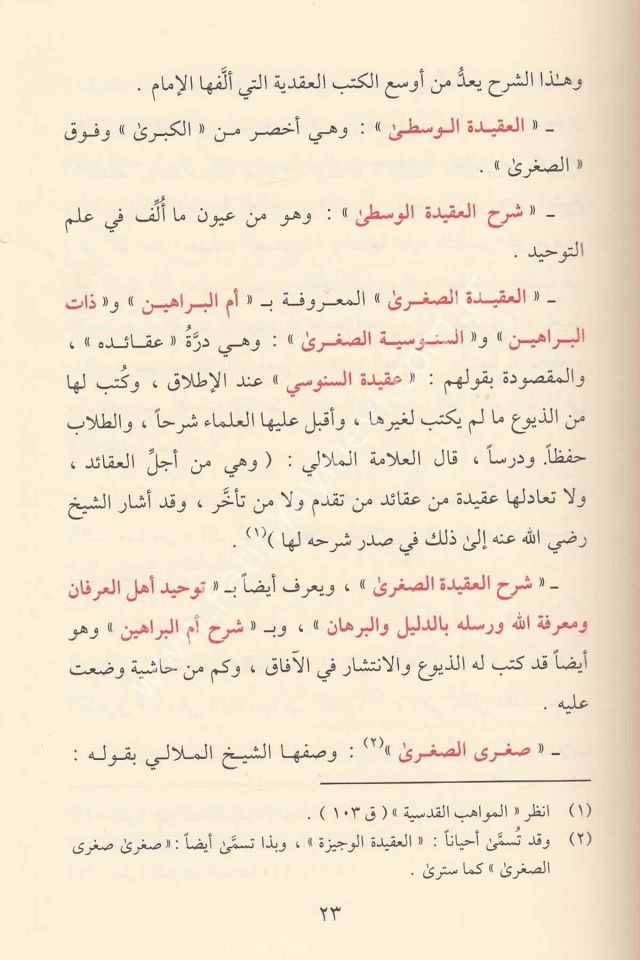 وهـٰذا الشرح يعدُّ من أوسع الكتب العقدية التي ألَّفها الإمام .
ـ « العقيدة الـوسطىٰ » : وهـي أخصر مـن « الكبرىٰ » وفـوق
« الصغرىٰ » .
ـ « شرح العقيدة الوسطىٰ » : وهو من عيون ما أُلِّف في علم
التوحيد .
ـ « العقيدة الصغـرىٰ » المعـروفـة بـ « أم البـراهيـن » و« ذات
البـراهيـن » و« السنـوسيـة الصغـرىٰ » : وهـي درَّةُ « عقـائـده » ،
والمقصودة بقولهم : « عقيدة السنوسي » عند الإطلاق ، وكُتب لها
من الذيوع ما لم يكتب لغيرها ، وأقبل عليها العلماء شرحاً ، والطلاب
حفظاً ودرساً ، قال العلامة الملالي : ( وهي من أجلِّ العقائد ،
ولا تعادلها عقيدة من عقائد من تقدم ولا من تأخَّر ، وقد أشار الشيخ
رضي الله عنه إلىٰ ذلك في صدر شرحه لها )(١) .
ـ « شرح العقيدة الصغرىٰ » ، ويعرف أيضاً بـ « توحيد أهل العرفان
ومعرفة الله ورسله بالدليل والبرهان » ، وبـ « شرح أم البراهين » وهو
أيضاً قد كتب له الذيوع والانتشار في الآفاق ، وكم من حاشية وضعت
عليه .
ـ « صغرى الصغرىٰ »(٢) : وصفهـا الشيـخ المـلالـي بقـولـه :
(١) انظر « المواهب القدسية » ( ق ١٠٣ ) .
(٢) وقد تُسمَّىٰ أحياناً : « العقيدة الوجيزة » ، وبذا تسمَّىٰ أيضاً : « صغرىٰ صغرى
الصغرىٰ » كما سترىٰ .
٢٣